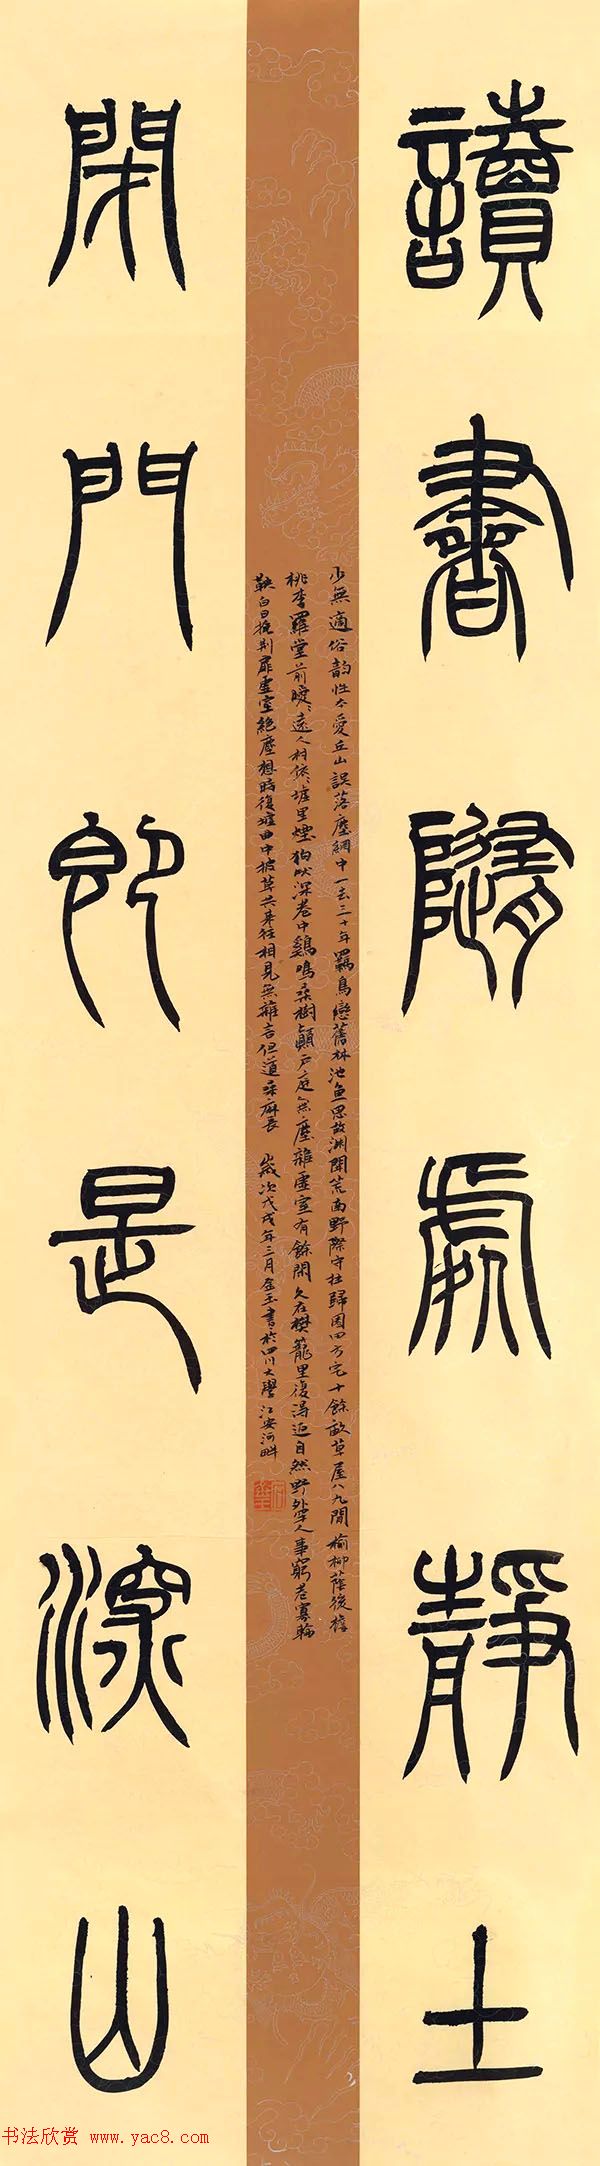 讀書隨處靜土
閉門即是深山
少無適俗韵性本愛丘山誤落塵網中一去三十年羈鳥戀舊林池魚思故淵開荒南野際守拙歸園田方宅十餘畝草屋八九間榆柳蔭後檐
桃李羅堂前曖〻遠人村依〻墟里煙狗吠深巷中鷄鳴桑樹顛戶庭無塵雜虛室有餘閒久在樊籠里復得返自然野外罕人事窮巷寡輪
鞅白日掩荆扉虛室絕塵想時復墟曲中披草共來往相見無雜言但道桑麻長 歲次戊戌年三月金玉書於四川大學江安河畔
书法欣赏 www.yac8.com